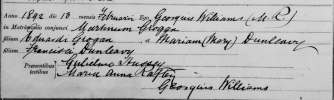 Anno 1892 die 10 mensis Februarii Ego Georgius Williams (M.R.)
in Matrimonium conjunxi Martinum Grogan
filium Eduardi Grogan a Mariam (Mary) Dunleavy
filiam Francisci Dunleavy
Praesentibus Gulielmo Hussey
testibus Maria Anna
Georgius Williams